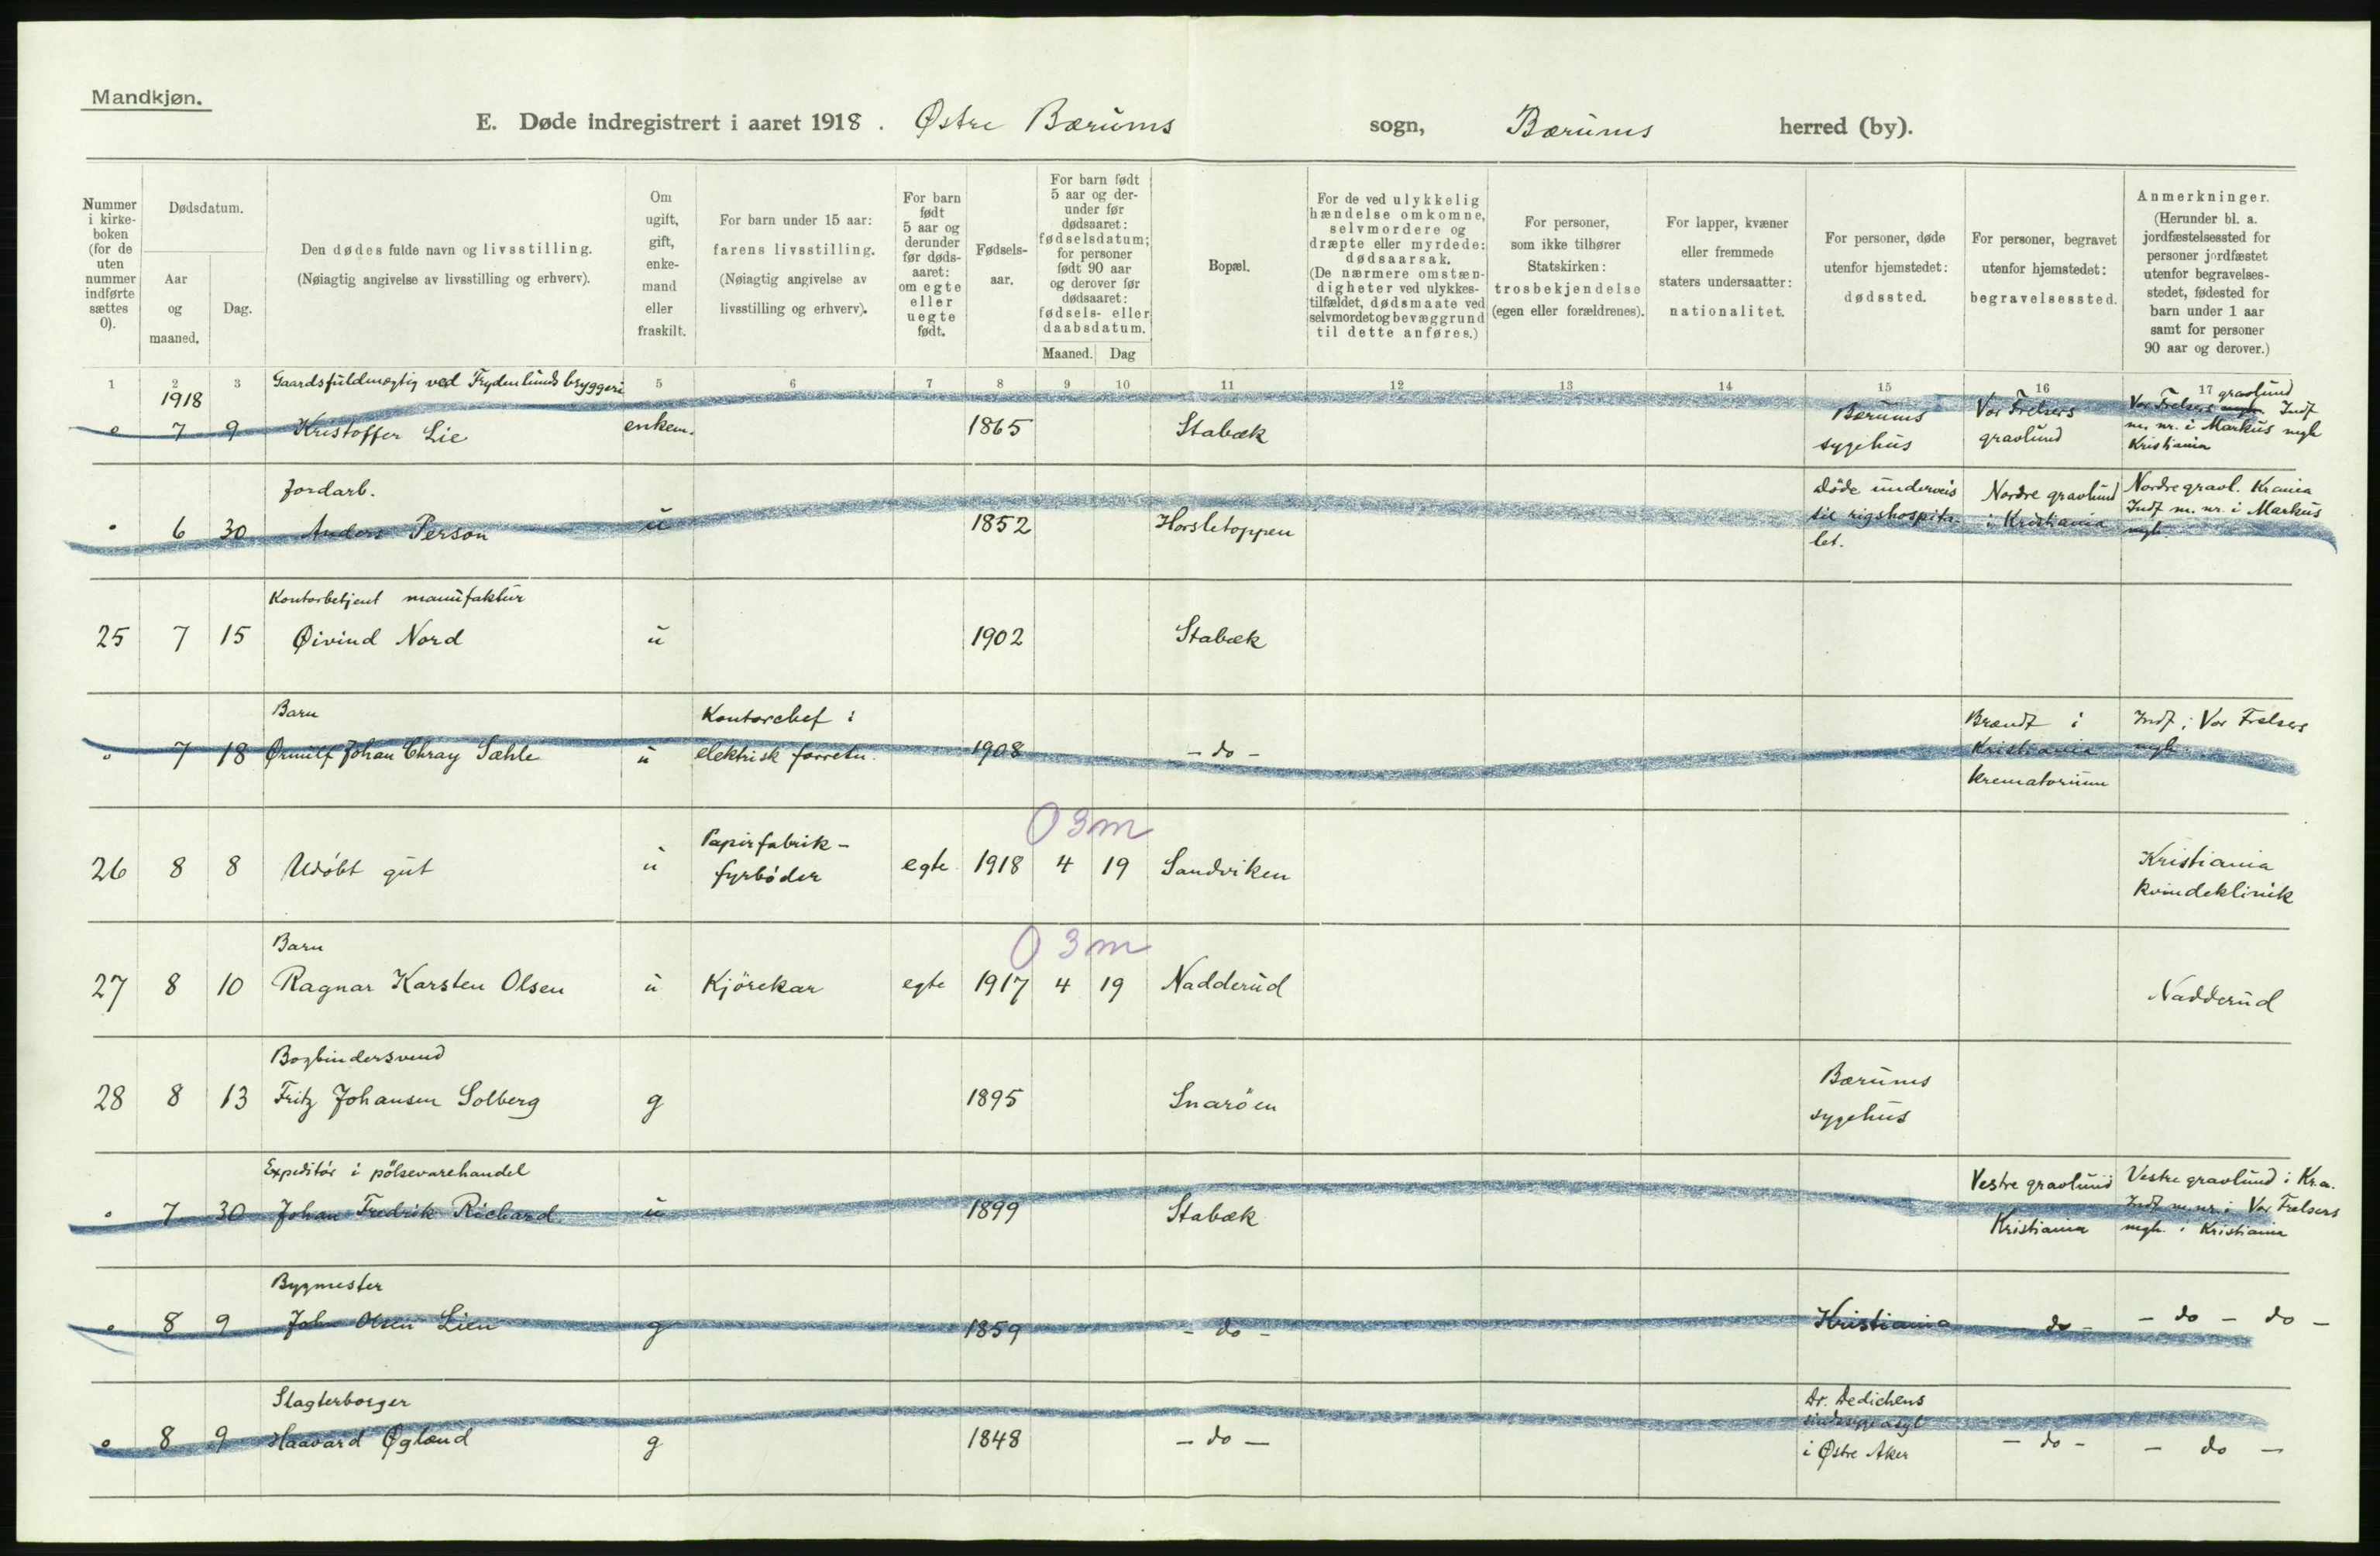 Mandkjøn.
E. Døde indregistrert i aaret 1918. Østre Bærums sogn, Bærums herred (by).
Nummer i kirkeboken (for de uten nummer indførte sættes 0).
Dødsdatum.
Aar og maaned.
Dag.
Den dødes fulde navn og livsstilling.
(Nøiagtig angivelse av livsstilling og erhverv).
Om ugift, gift, enkemand eller fraskilt.
For barn under 15 aar: farens livsstilling. (Nøiagtig angivelse av livsstilling og erhverv).
For barn født 5 aar og derunder før dødsaaret: om egte eller uegte født.
Fødselsaar.
For barn født 5 aar og derunder før dødsaaret: fødselsdatum; for personer født 90 aar og derover før dødsaaret: fødsels- eller daabsdatum.
Maaned. Dag
Bopæl.
For de ved ulykkelig hændelse omkomne, selvmordere og dræpte eller myrdede: dødsaarsak. (De nærmere omstændigheter ved ulykkestilfældet, dødsmaate ved selvmordet og bevæggrund til dette anføres.)
For personer, som ikke tilhører Statskirken: trosbekjendelse (egen eller forældrenes).
For lapper, kvæner eller fremmede staters undersaatter: nationalitet.
For personer, døde utenfor hjemstedet: dødssted.
For personer, begravet utenfor hjemstedet: begravelsessted.
Anmerkninger.
(Herunder bl. a. jordfæstelsessted for personer jordfæstet utenfor begravelsesstedet, fødested for barn under 1 aar samt for personer 90 aar og derover.)
1 2 3 5 6 7 8 9 10 11 12 13 14 15 16 17
1918 Gaardsfuldmægtig ved Frydenlunds bryggeri
0 7 9 Kristoffer Lie enkem. 1865 Stabæk Bærums sygehus Vor Frelsers gravlund Vor Frelsers gravlund Indf m. nr. i Markus mgh Kristiania
Jordarb.
0 6 30 Anders Person u 1852 Horsletoppen Døde underveis til rigshospitalet. Nordre gravlund i Kristiania Nordre gravl. Krania Indf m. nr. i Markus mgh.
Kontorbetjent manufaktur
25 7 15 Øivind Nord u 1902 Stabæk
Barn Kontorchef i
0 7 18 Ørnulf Johan Chray Sæhle u elektrisk forretn. 1908 - do - Brændt i Kristiania krematorium Indf i Vor Frelsers mgh.
0 3m
26 8 8 Udöbt gut u Papirfabrik-fyrböder egte 1918 4 19 Sandviken Kristiania kvindeklinik
0 3m
Barn
27 8 10 Ragnar Karsten Olsen u Kjörekar egte 1917 4 19 Nadderud Nadderud
Bogbindersvend
28 8 13 Fritz Johansen Solberg g 1895 Snaröen Bærums sygehus
Expeditör i pölsevarehandel
0 7 30 Johan Fredrik Richard u 1899 Stabæk Vestre gravlund Kristiania Vestre gravlund i Kra. Indf m. nr. i Vor Frelsers mgh. i Kristiania
Bygmester
0 8 9 John Olsen Lien g 1859 - do - Kristiania - do - - do - do -
Slagterborger
0 8 9 Haavard Øglænd g 1848 - do - Dr. Dedichens sindssygeasyl i Østre Aker - do - - do -